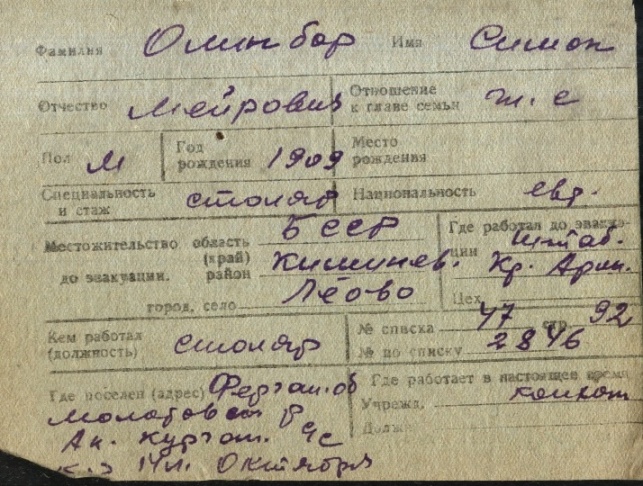 Фамилия Олинбор Имя Симон
Отчество Мейрович Отношение к главе семьи
Пол М Год рождения 1909 Место рождения
Специальность и стаж столяр Национальность евр.
Местожительство область (край) БССР
Где работал до эвакуации Штаб. Кр. Арм.
до эвакуации. район Кишинев.
город, село Лёово Цех
Кем работал (должность) столяр № списка 47 стр. 92
№ по списку 2846
Где поселен (адрес) Ферган. об
Где работает в настоящее время
Молотовский р
Учрежд. колхоз
Ак. Курган.
Должн
к-з 14 л. Октября